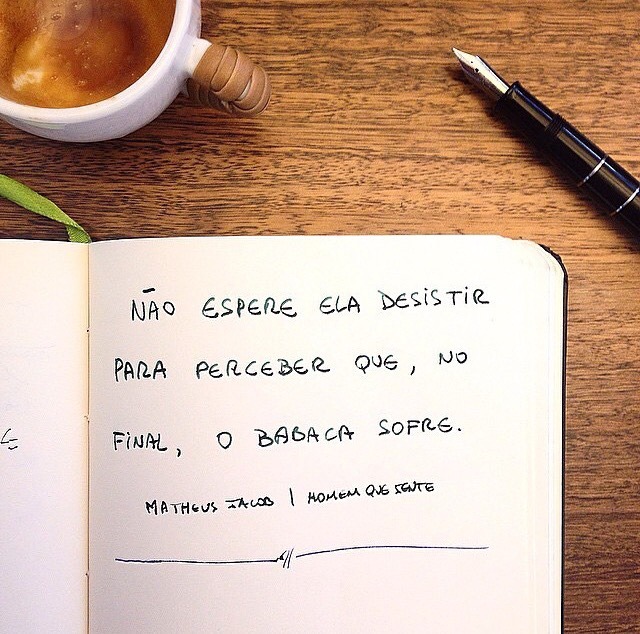 NÃO ESPERE ELA DESISTIR
PARA PERCEBER QUE, NO
FINAL, O BABACA SOFRE.
MATHEUS JACOB | HOMEM QUE SENTE